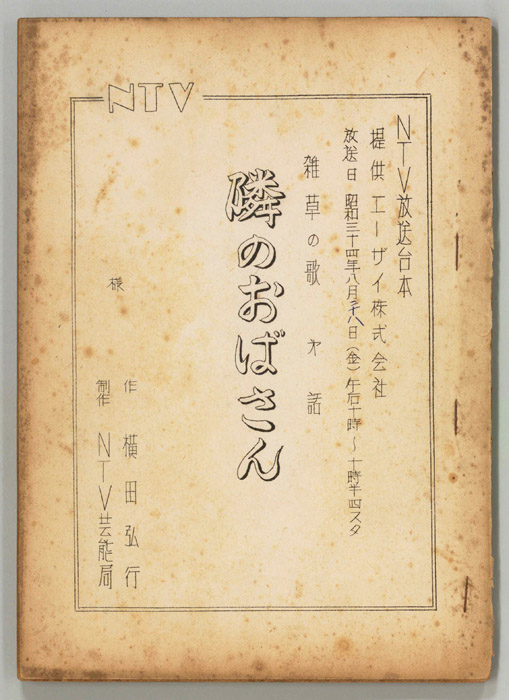 NTV
NTV放送台本
提供 エーザイ株式会社
放送日 昭和三十四年八月廿八日(金)午后十時～十時半四スタ
雑草の歌 才 話
隣のおばさん
様
作 横田弘行
制作 NTV芸能局